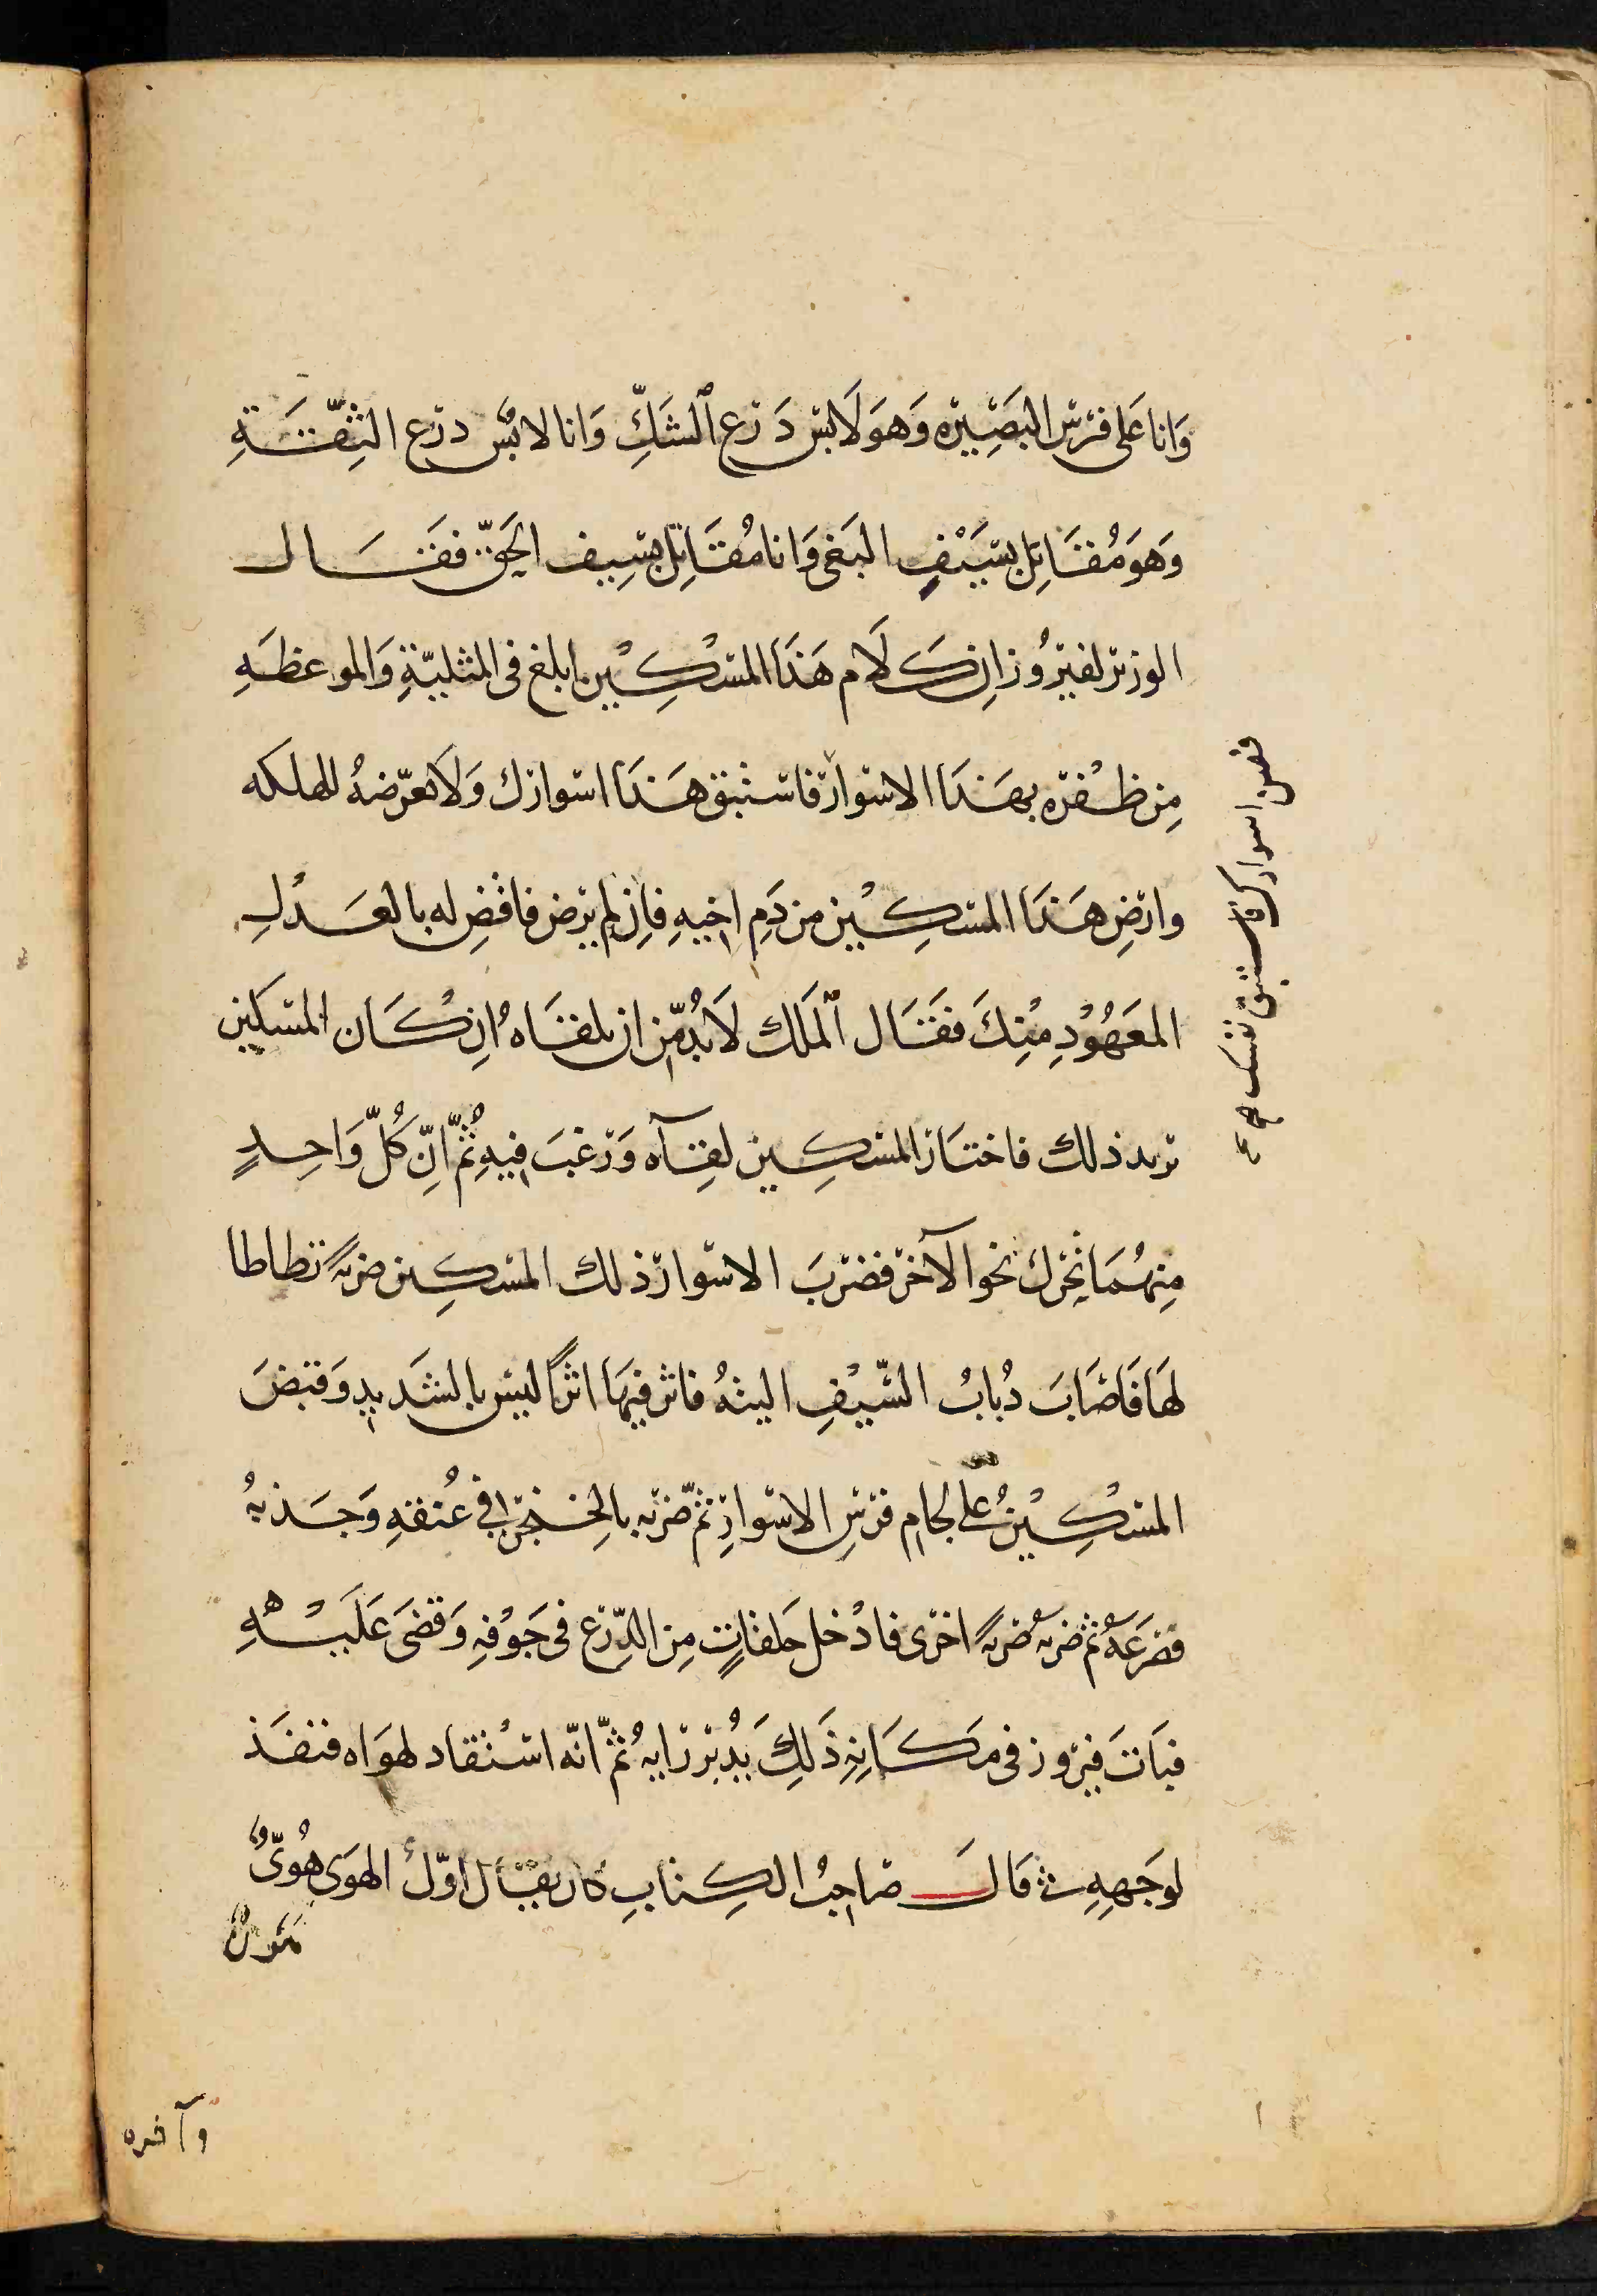 وَانا عَلى فرَس البَصِيرَه وَهوَ لَابس دَرع ٱلشَكِّ وَانا لابسٌ درع الثِقَّةِ
وَهوَ مُقَاتِل بسَيْفِ البَغى وَانا مُقَاتِل بسِيف الحَقّ فقَال
الوزير لفيرُوز اِن كَلَام هَذَا المسْكِيْن ابلغ فى المثليّةِ وَالموعظَهِ
مِن ظفْره بهَذَا الاسوار فاستبق هَذَا اسوارك وَلَا تعرّضهُ للهلكه
وارضِ هَذَا المسكِيْن من دَمِ اخيهِ فاِن لم يرض فاقضِ له بالعَدْلِ
المعَهُوْدِ مْنِكَ فقَال ٱلمَلَك لَا بُدّ من ان يلقَاهُ اِن كَان المسكين
يريد ذلك فاختَار المسكِين لقِآه وَرغبَ فيهِ ثُمَّ اِنّ كُلّ وَاحِدٍ
مِنهُمَا تحَرك نحو الآخر فضربَ الاسوار ذلك المسكِين ضربةً تطاطا
لهَا فَاصَابَ ذُبابُ السّيْفِ اليتهُ فاثر فيهَا اثراً ليس بالشَديدِ وَقبضَ
المسْكِيْنُ على لجام فرسِ الاسوارِ ثمّ ضربه بالخِنجر فى عُنقهِ وَجَذبهُ
فصَرعَهُ ثم ضربهُ ضربةً اخرى فادْخل حَلقاتٍ مِن الدِّرع فى جَوْفهِ وَقضَى عَلَيْهِ
فبَاتَ فيروز فى مَكَانِهِ ذَلِكَ يدُبر رَايهُ ثمّ انّه اسْتقاد لهوَاه فنفَذ
لوَجَهِهِ قَالَ صَاحِبُ الكِتابِ كان يقَال اوّلُ الهوَى هُوىٌّ
هَوانٌ
وآخره
فضن اسوارك فاستبق نفسك